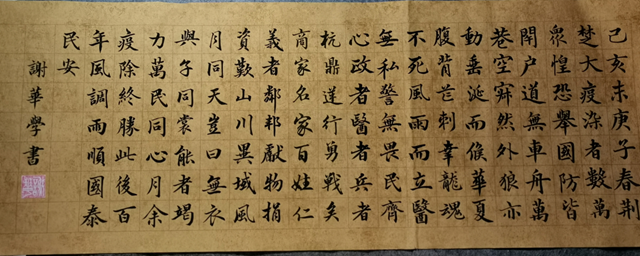 己亥末庚子春荆
楚大疫染者數萬
衆惶恐舉國防皆
閉户道無車舟萬
巷空寂然外狼亦
動垂涎而候華夏
腹背芒刺幸龍魂
不死風雨而立醫
無私警無畏民齊
心政者醫者兵者
杭鼎逆行勇戰矣
商家名家百姓仁
義者鄰邦獻物捐
資歎山川異域風
月同天豈曰無衣
與子同裳能者竭
力萬民同心月余
疫除終勝此後百
年風調雨順國泰
民安
謝華學書